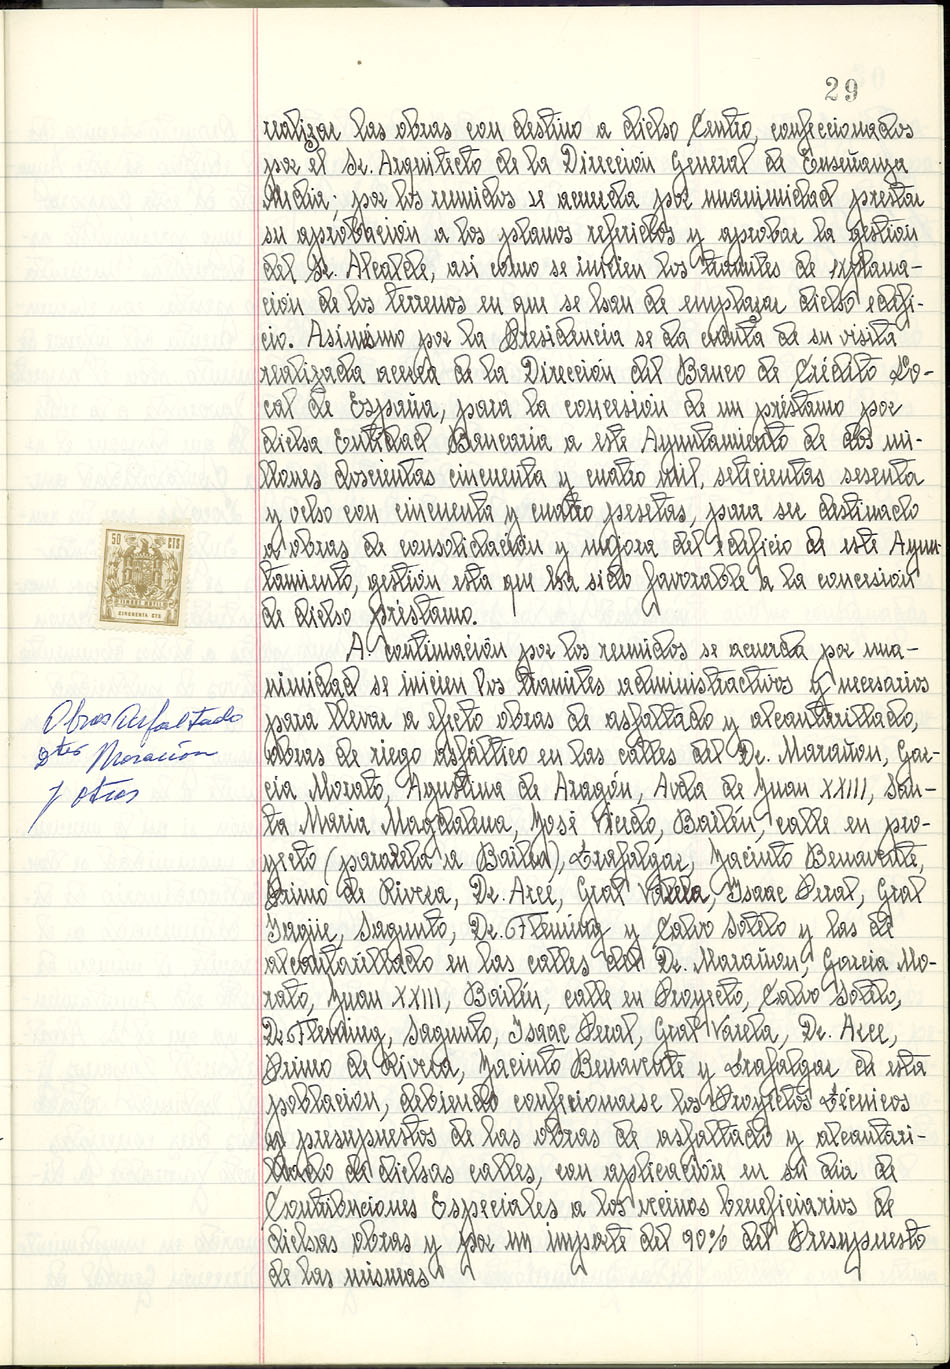 29
realizar las obras con destino a dicho Centro, confeccionados
por el Sr. Arquitecto de la Dirección General de Enseñanza
Media; por los reunidos se acuerda por unanimidad prestar
su aprobación a los planos referidos y aprobar la gestión
del Sr. Alcalde, así como se inicien los trámites de explana-
ción de los terrenos en que se han de emplazar dicho edifi-
cio. Asímismo por la Presidencia se da cuenta de su visita
realizada acerca de la Dirección del Banco de Crédito Lo-
cal de España, para la concesión de un préstamo por
dicha Entidad Bancaria a este Ayuntamiento de dos mi-
llones doscientas cincuenta y cuatro mil, setecientas sesenta
y ocho con cincuenta y cuatro pesetas, para ser destinado
a obras de consolidación y mejora del edificio de este Ayun-
tamiento, gestión esta que ha sido favorable a la concesión
de dicho préstamo.
50 CTS
TIMBRE MOVIL
CINCUENTA CTS
A continuación por los reunidos se acuerda por una-
nimidad se inicien los trámites administrativos y necesarios
Obras asfaltado
Dtor Marañón
y otros
para llevar a efecto obras de asfaltado y alcantarillado,
obras de riego asfáltico en las calles del Dr. Marañon, Gar-
cía Morato, Agustina de Aragón, Avda de Juan XXIII, San-
ta María Magdalena, José Verdó, Bailén, calle en pro-
yecto (paralela a Bailen), Trafalgar, Jacinto Benavente,
Primo de Rivera, Dr. Arce, Gral Varela, Isaac Peral, Gral
Yagüe, Sagunto, Dr. Fleming y Calvo Sotelo y las de
alcantarillado en las calles del Dr. Marañon, García Mo-
rato, Juan XXIII, Bailén, calle en Proyecto, Calvo Sotelo,
Dr. Fleming, Sagunto, Isaac Peral, Gral Varela, Dr. Arce,
Primo de Rivera, Jacinto Benavente y Trafalgar de esta
población, debiendo confecionarse los Proyectos técnicos
y presupuestos de las obras de asfaltado y alcantari-
llado de dichas calles, con aplicación en su día de
Contribuciones Especiales a los vecinos beneficiarios de
dichas obras y por un importe del 90% del Presupuesto
de las mismas